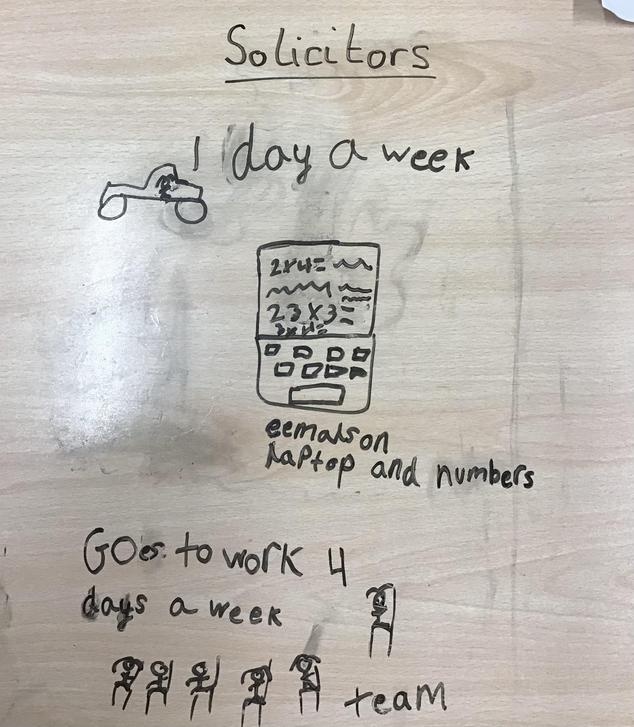 Solicitors
1 day a week
2x4=
23x3=
3x4=
eemals on
Laptop and numbers
Goes to work 4
days a week
team